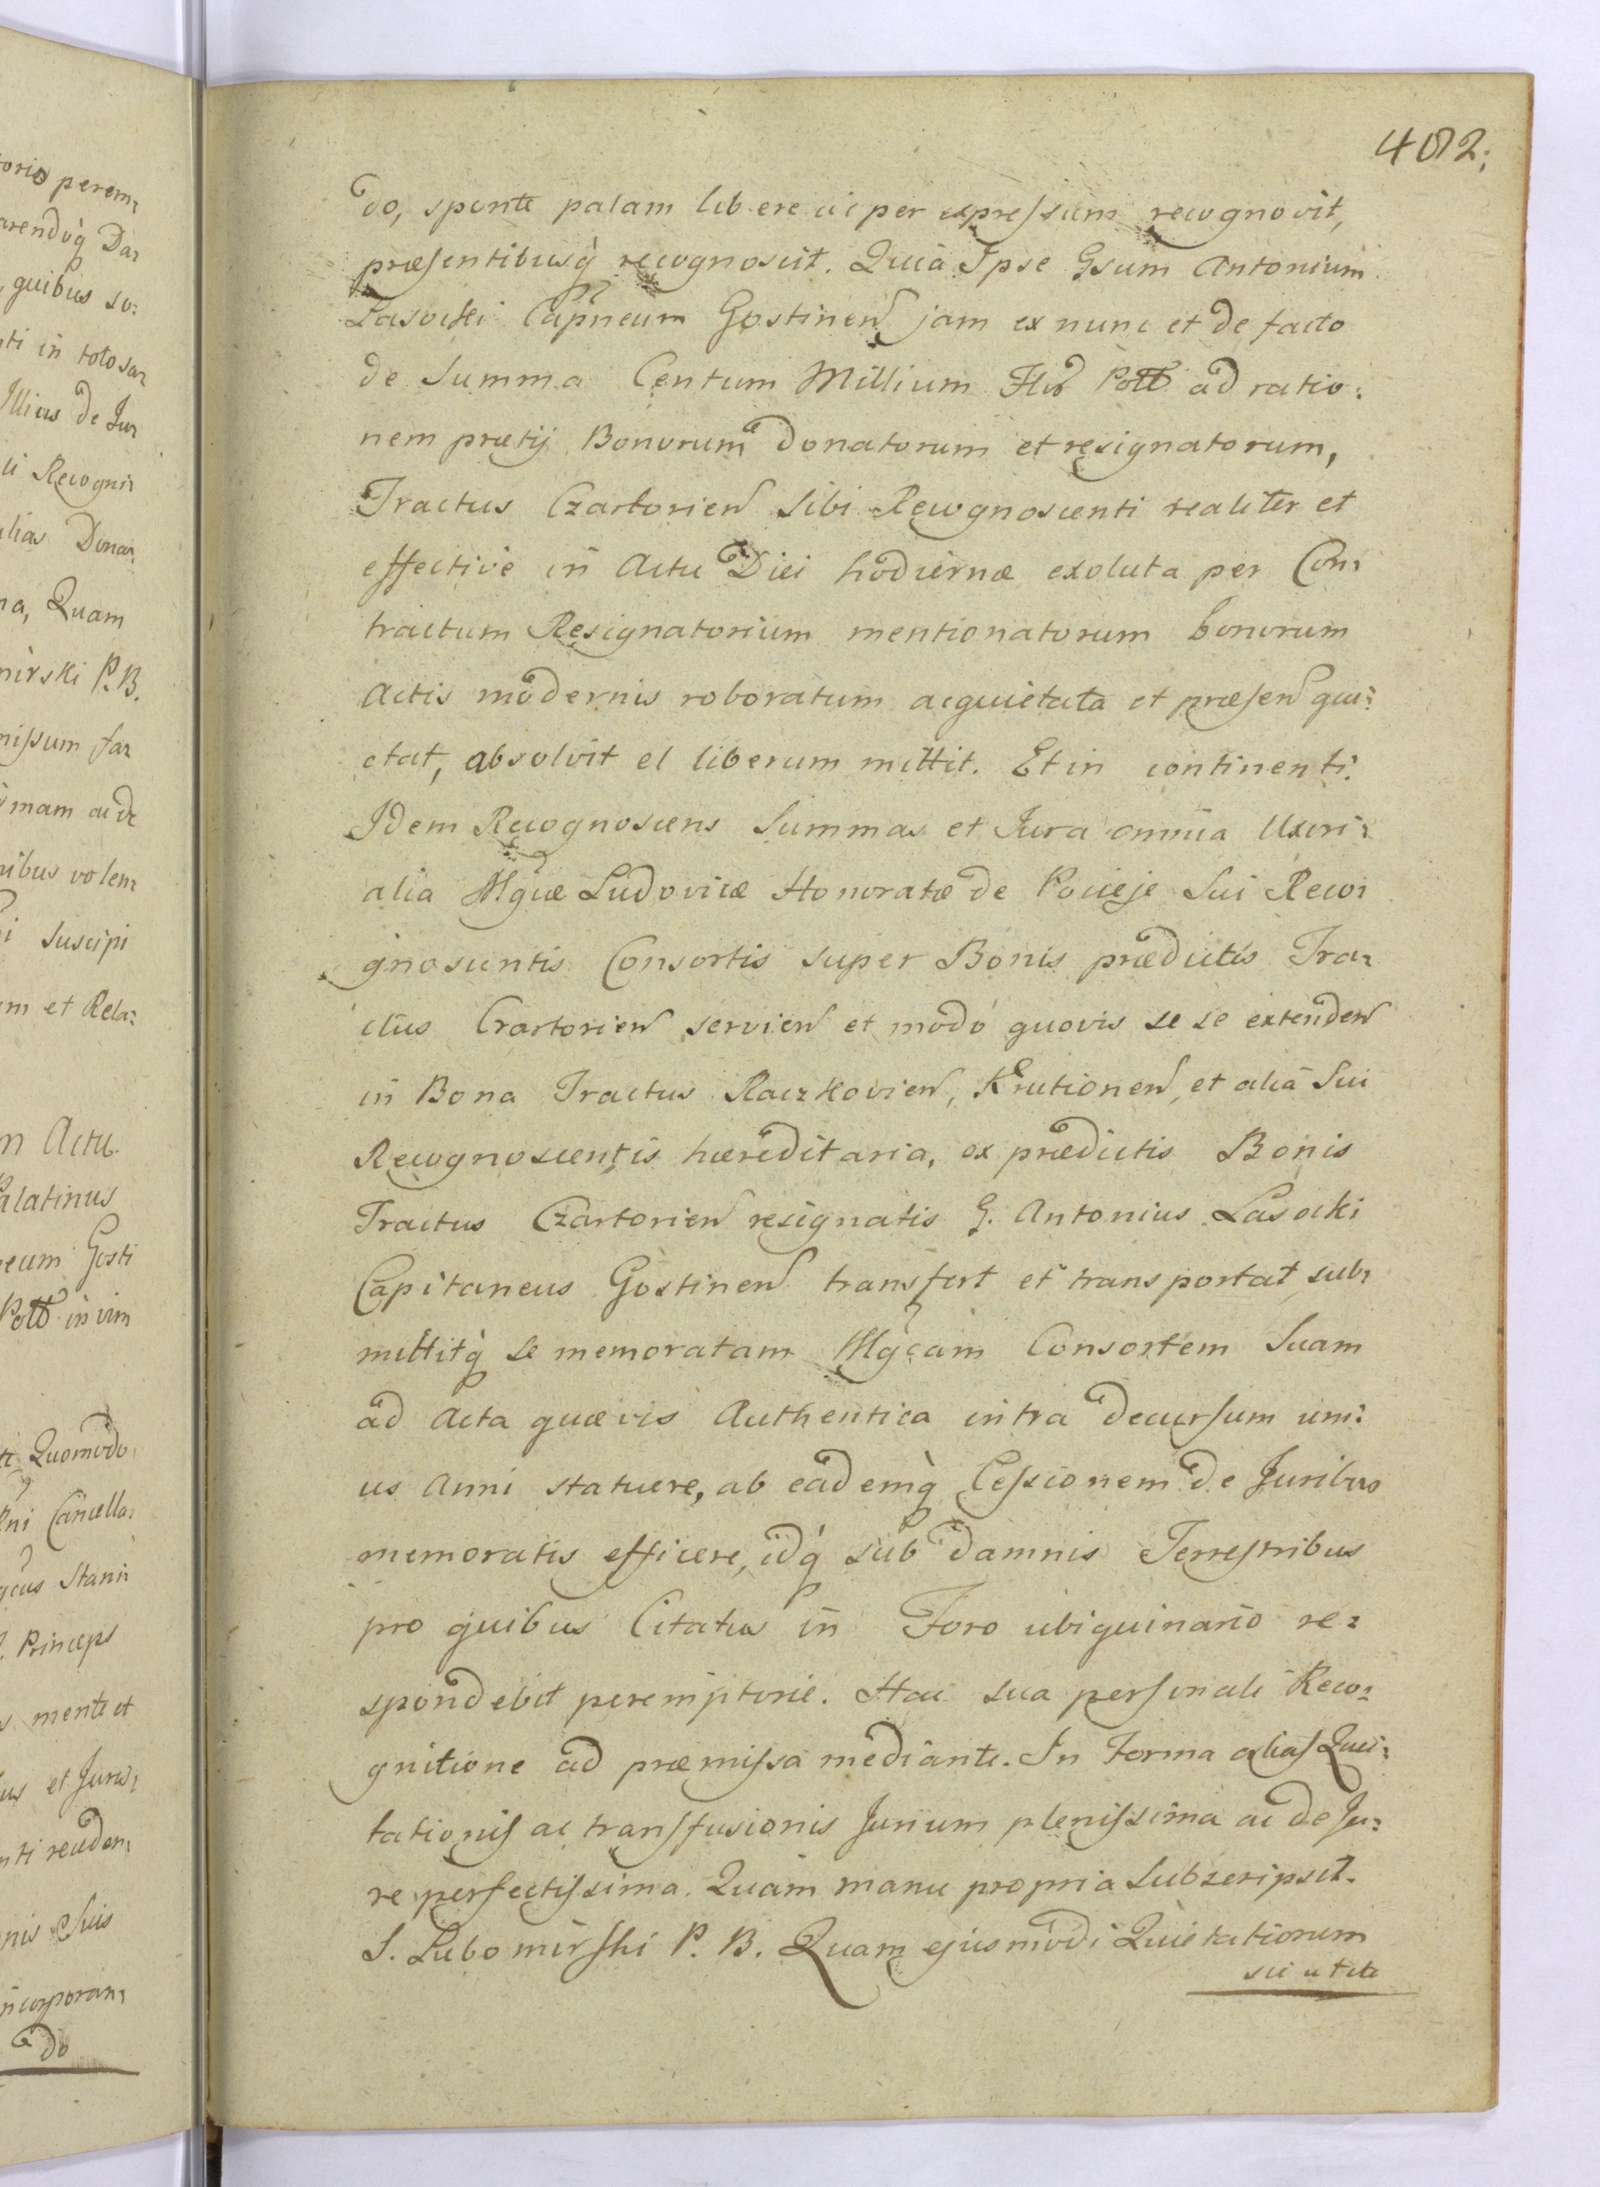 402;
do, sponte palam libere ac per expressum recognovit,
præsentibusq̀ recognoscit. Quia Ipse Gsum Antonium
Lasocki Capneum Gostinen jam ex nunc et de facto
de Summa Centum Millium Flor Poll ad ratio:
nem prætij Bonorum donatorum et resignatorum,
Tractus Czartorien Sibi Recognoscenti realiter et
effective in Actu Diei hodiernæ exoluta per Con:
tractum Resignatorium mentionatorum bonorum
Actis modernis roboratum acquietata et præsen qui:
etat, absolvit et liberum mittit. Et in continenti
Idem Recognoscens Summas et Jura omnia Uxori:
alia Mgcæ Ludovicæ Honoratæ de Pocieje Sui Reco:
gnoscentis Consortis super Bonis prædictis Tra:
ctus Czartorien servien et modo quovis se se extenden
in Bona Tractus Raczkovien, Krutionen, et alia Sui
Recognoscentis hæreditaria, ex prædictis Bonis
Tractus Czartorien resignatis G. Antonius Lasocki
Capitaneus Gostinen transfert et transportat sub:
mittitq̀ se memoratam Mgcam Consortem Suam
ad Acta quævis Authentica intra decursum uni:
us Anni statuere, ab eademq̀ Cessionem de Juribus
memoratis efficere, idq̀ sub damnis Terrestribus
pro quibus Citatus in Foro ubiquinario re:
spondebit peremptorie. Hac sua personali Reco:
gnitione ad præmissa mediante. In Forma alias Qui:
tationis ac transfusionis Jurium plenissima ac de Ju:
re perfectissima. Quam manu propria Subscripsit.
S. Lubomirski P. B. Quam ejusmodi Quietationum